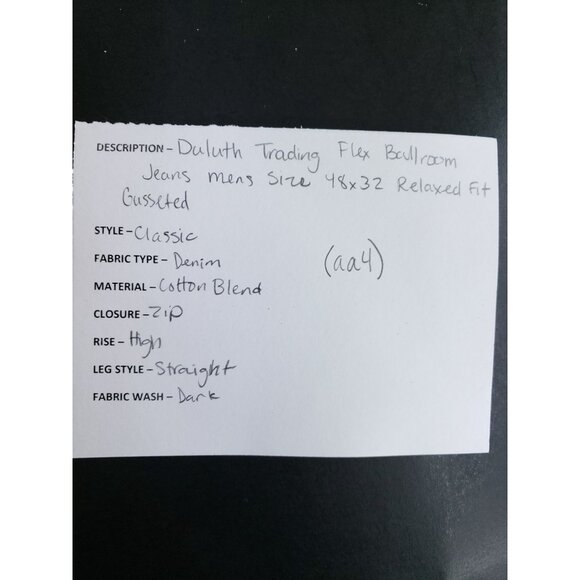 DESCRIPTION - Duluth Trading Flex Ballroom
Jeans mens Size 48x32 Relaxed Fit
Gusseted
STYLE - Classic
FABRIC TYPE - Denim
(aa4)
MATERIAL - Cotton Blend
CLOSURE - Zip
RISE - High
LEG STYLE - Straight
FABRIC WASH - Dark